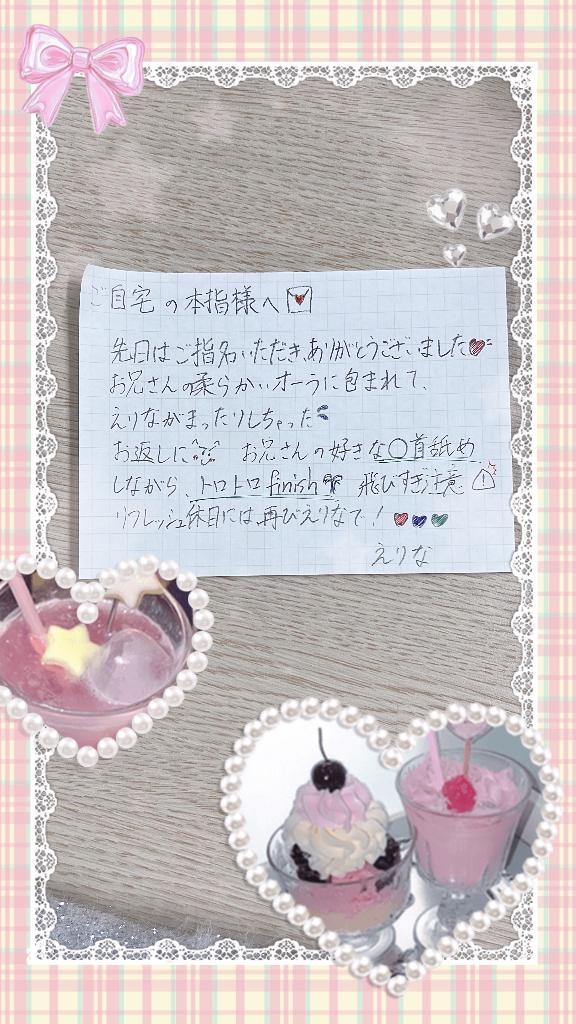 ご自宅の本指様へ
先日はご指名いただきありがとうございました
お兄さんの柔らかいオーラに包まれて、
えりながまったりしちゃった
お返しに お兄さんの好きな〇首舐め
しながら、トロトロfinish 飛びすぎ注意
リフレッシュ休日には再びえりなで!
えりな